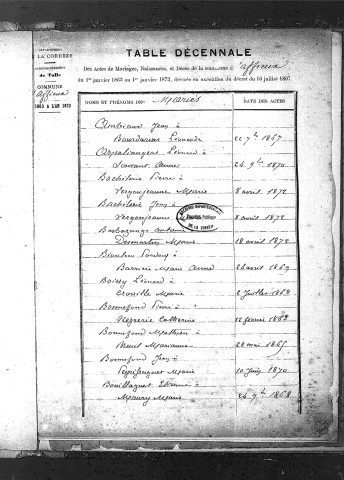 DÉPARTEMENT
DE LA CORRÈZE
ARRONDISSEMENT
de Tulle
COMMUNE
d'Affieux
1863 A L'AN 1873
TABLE DÉCENNALE
Des Actes de Mariages, Naissances, et Décès de la commune d'Affieux
du 1er janvier 1863 au 1er janvier 1873, dressée en exécution du décret du 10 juillet 1807.
NOMS ET PRÉNOMS DES Mariés
DATE DES ACTES
Jean à
Bourdarias Léonarde 22 7bre 1867
Léonard à
Laurant Anne 24 9bre 1870
Bachelerie Pierre à
Vergonjeanne Marie 8 avril 1872
Bachelerie Jean à
Vergonjeanne 8 avril 1872
Antoine à
Desmartin Marie 18 avril 1872
à
Barrière Marie Anne 26 avril 1869
Boissy Léonard à
Marie 2 Juillet 1868
Bonnefond Pierre à
Catherine 12 février 1868
Bonnefond Mathieu à
Marianne 22 mai 1865
Bonnefond Jean à
Marie 10 Juin 1870
Bouillaguet Etienne à
Maury Marie 24 9bre 1868
ARCHIVES DÉPARTEMENTALES
DE LA CORRÈZE